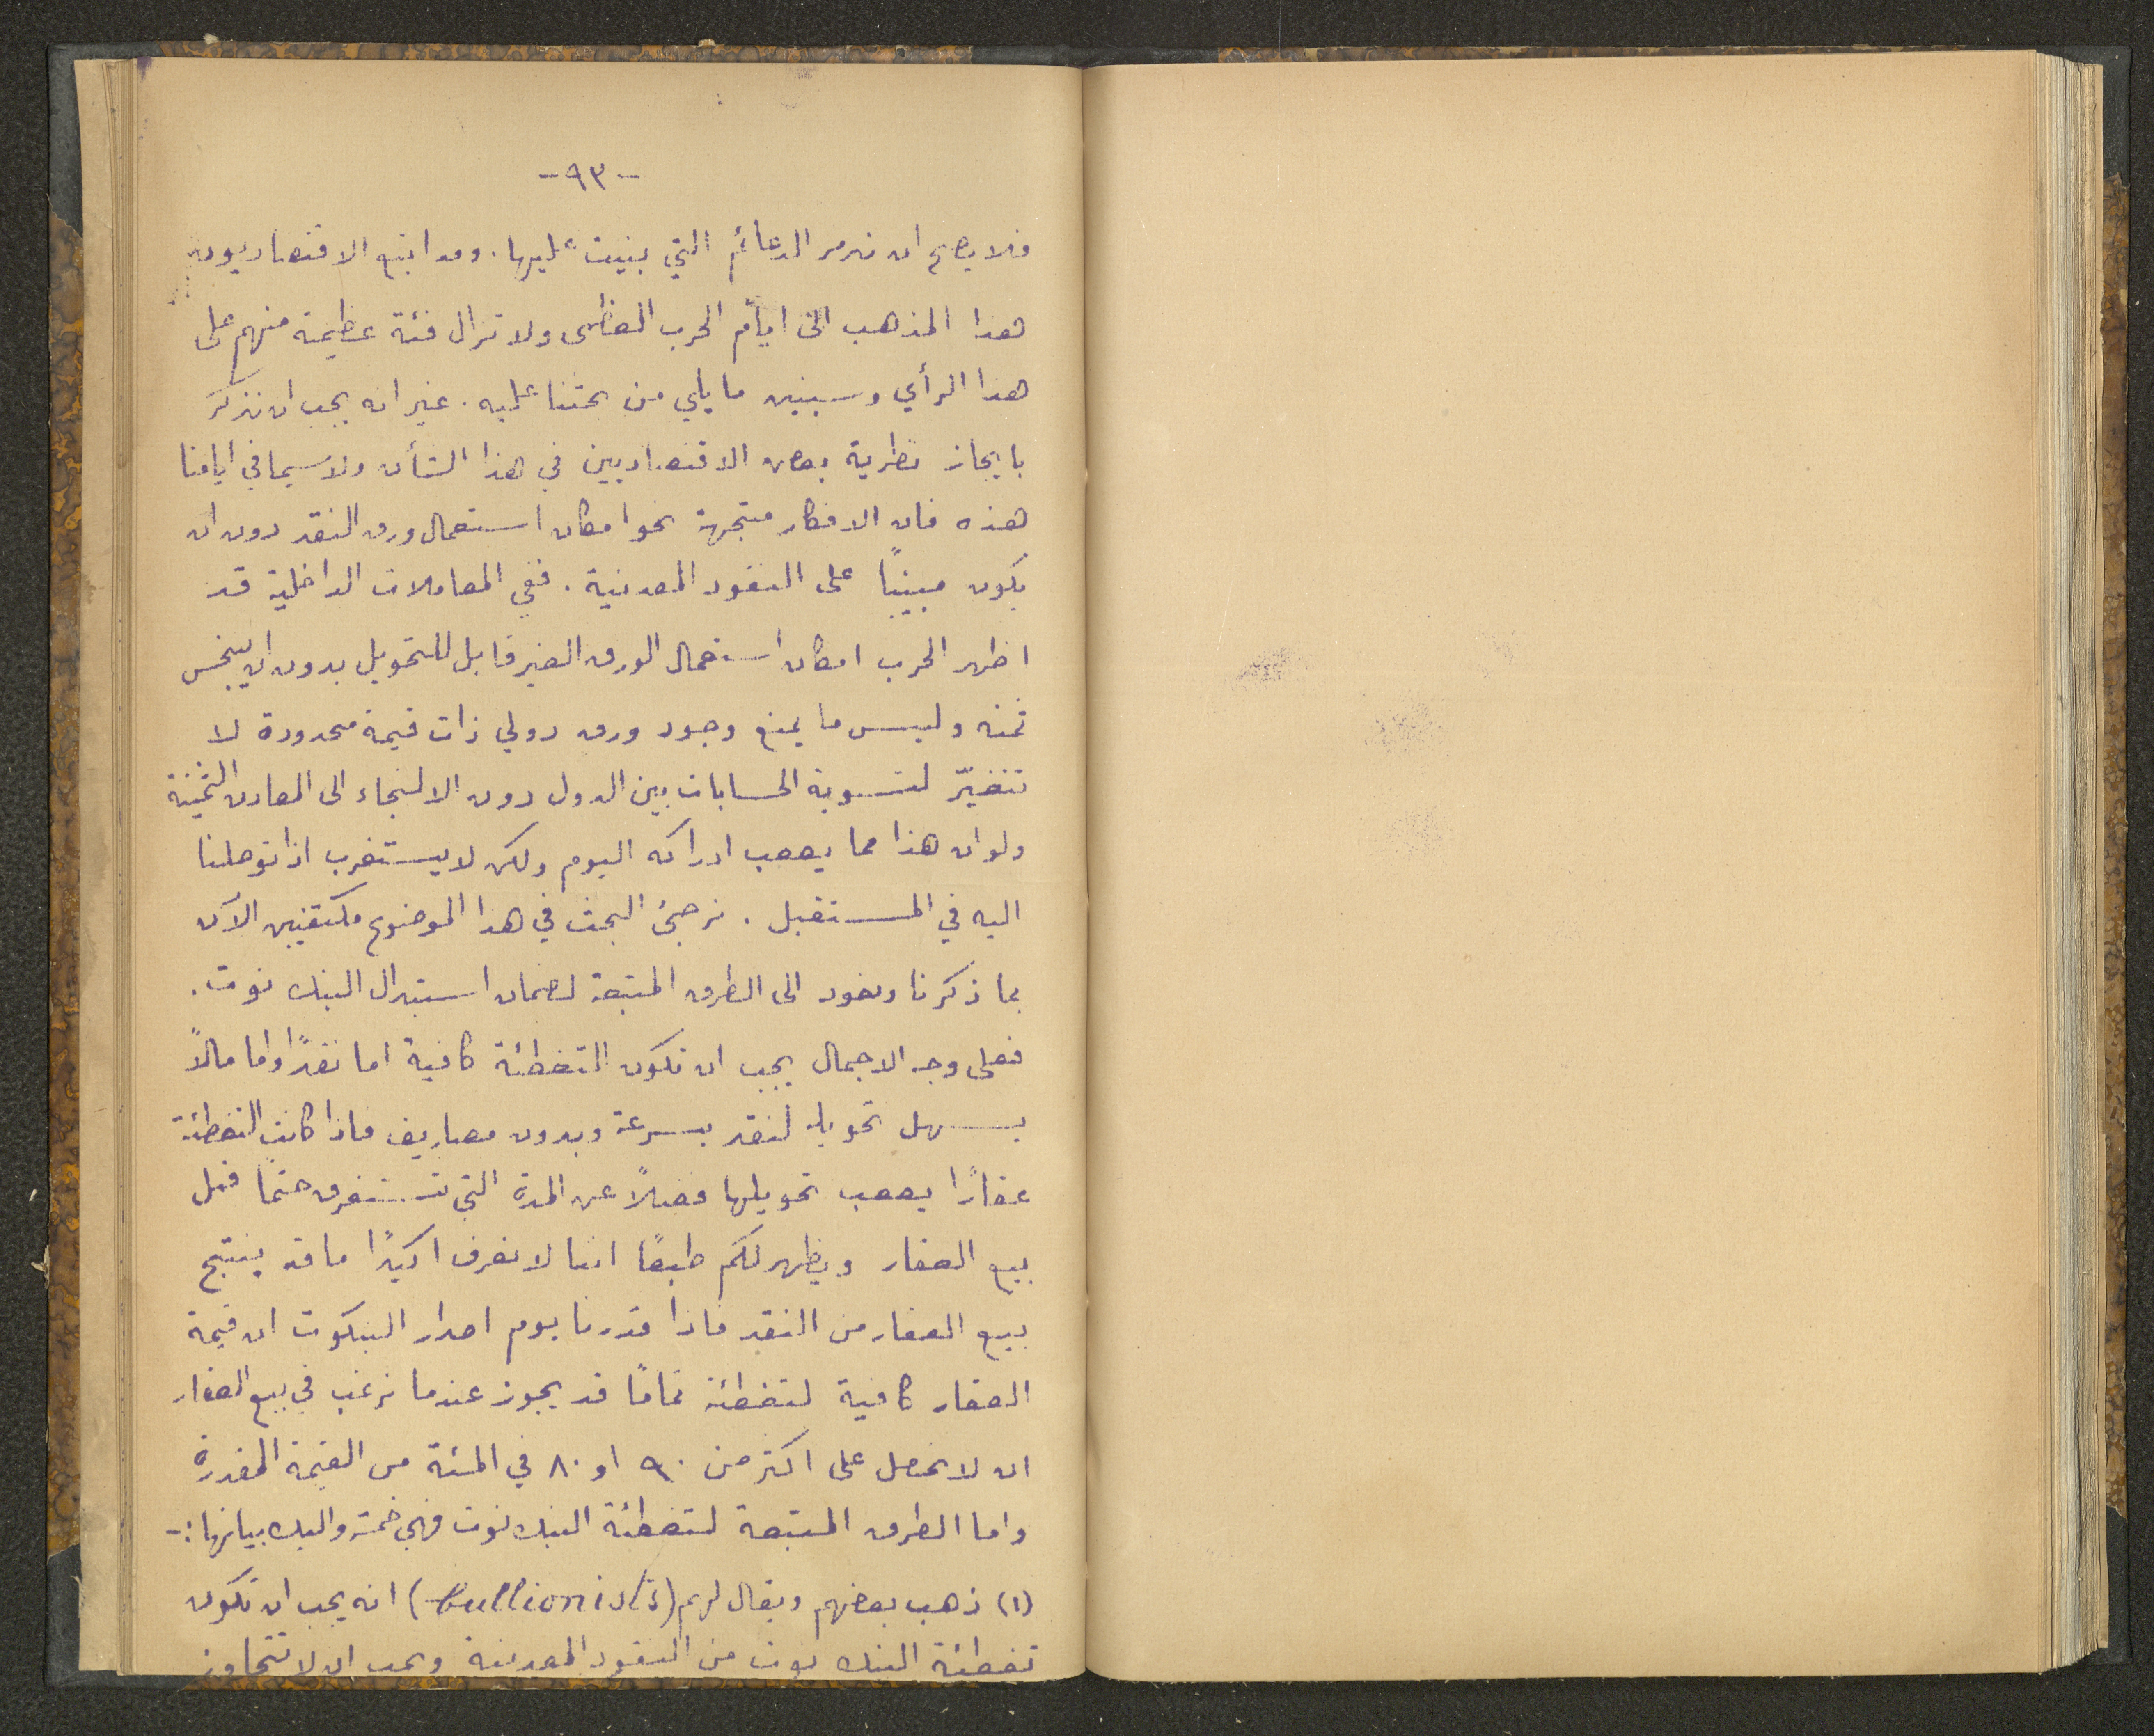 -٩٣-
فلا يصح ان ندمر الدعائم التي بنيت عليها. وقد اتبع الاقتصاديون
هذا المذهب الى ايام الحرب العظمى ولا تزال فئة عظيمة منهم على
هذا الرأي وسيبين ما يلي من بحثنا عليه. غير انه يجب ان نذكر
بايجاز نظرية بعض الاقتصاديين في هذا الشأن ولا سيما في ايامنا
هذه فان الافكار متجهة نحو امكان استعمال ورق النقد دون ان
يكون مبنيًا على النقود المعدنية. ففي المعاملات الداخلية قد
اظهر الحرب امكان استعمال الورق الغير قابل للتحويل بدون ان يبخس
ثمنه وليس ما يمنع وجود ورق دولي ذات قيمة محدودة لا
تتغيّر لتسوية الحسابات بين الدول دون الالتجاء الى المعادن الثمينة
ولو ان هذا مما يصعب ادراكه اليوم ولكن لا يستغرب اذا توصلنا
اليه في المستقبل. نرجئ البحث في هذا الموضوع مكتفين الآن
بما ذكرنا ونعود الى الطرق المتبعة لضمان استبدال البنك نوت.
فعلى وجه الاجمال يجب ان تكون التغطئة كافية اما نقدًا واما مالاً
يسهل تحويله لنقد بسرعة وبدون مصاريف فاذا كانت التغطئة
عقارًا يصعب تحويلها فضلاً عن المدة التي تستغرق حتمًا قبل
بيع العقار ويظهر لكم طبعًا اننا لا نعرف اكيدًا ما قد ينتج
بيع العقار من النقد فاذا قدرنا يوم اصدار البنكوت ان قيمة
العقار كافية لتغطئة تمامًا قد يجوز عندما نرغب في بيع العقار
ان لا نحصل على اكثر من ٩٠ او ٨٠ في المئة من القيمة المقدرة
واما الطرق المتبعة لتغطئة البنك نوت فهي خمسة واليك بيانها:-
(١) ذهب بعضهم ويقال لهم (bullionists) انه يجب ان تكون
تغطئة البنك نوت من النقود المعدنية ويجب ان لا تتجاوز